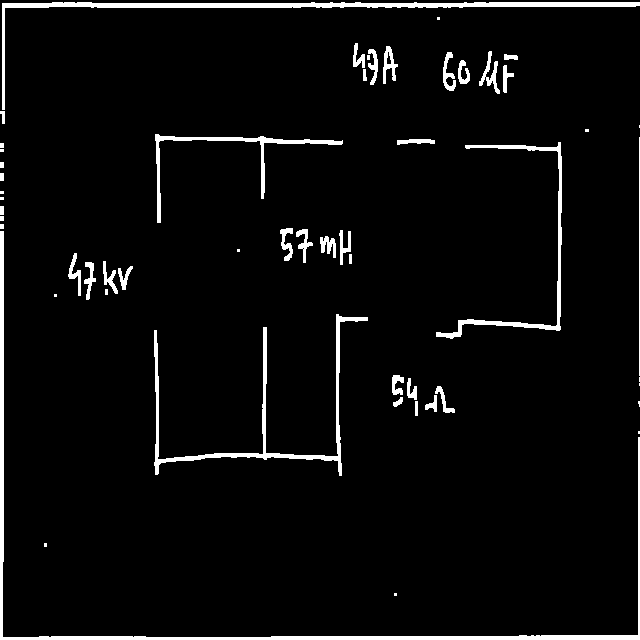 49A 60 µF
57 mH
47 kV
54 Ω